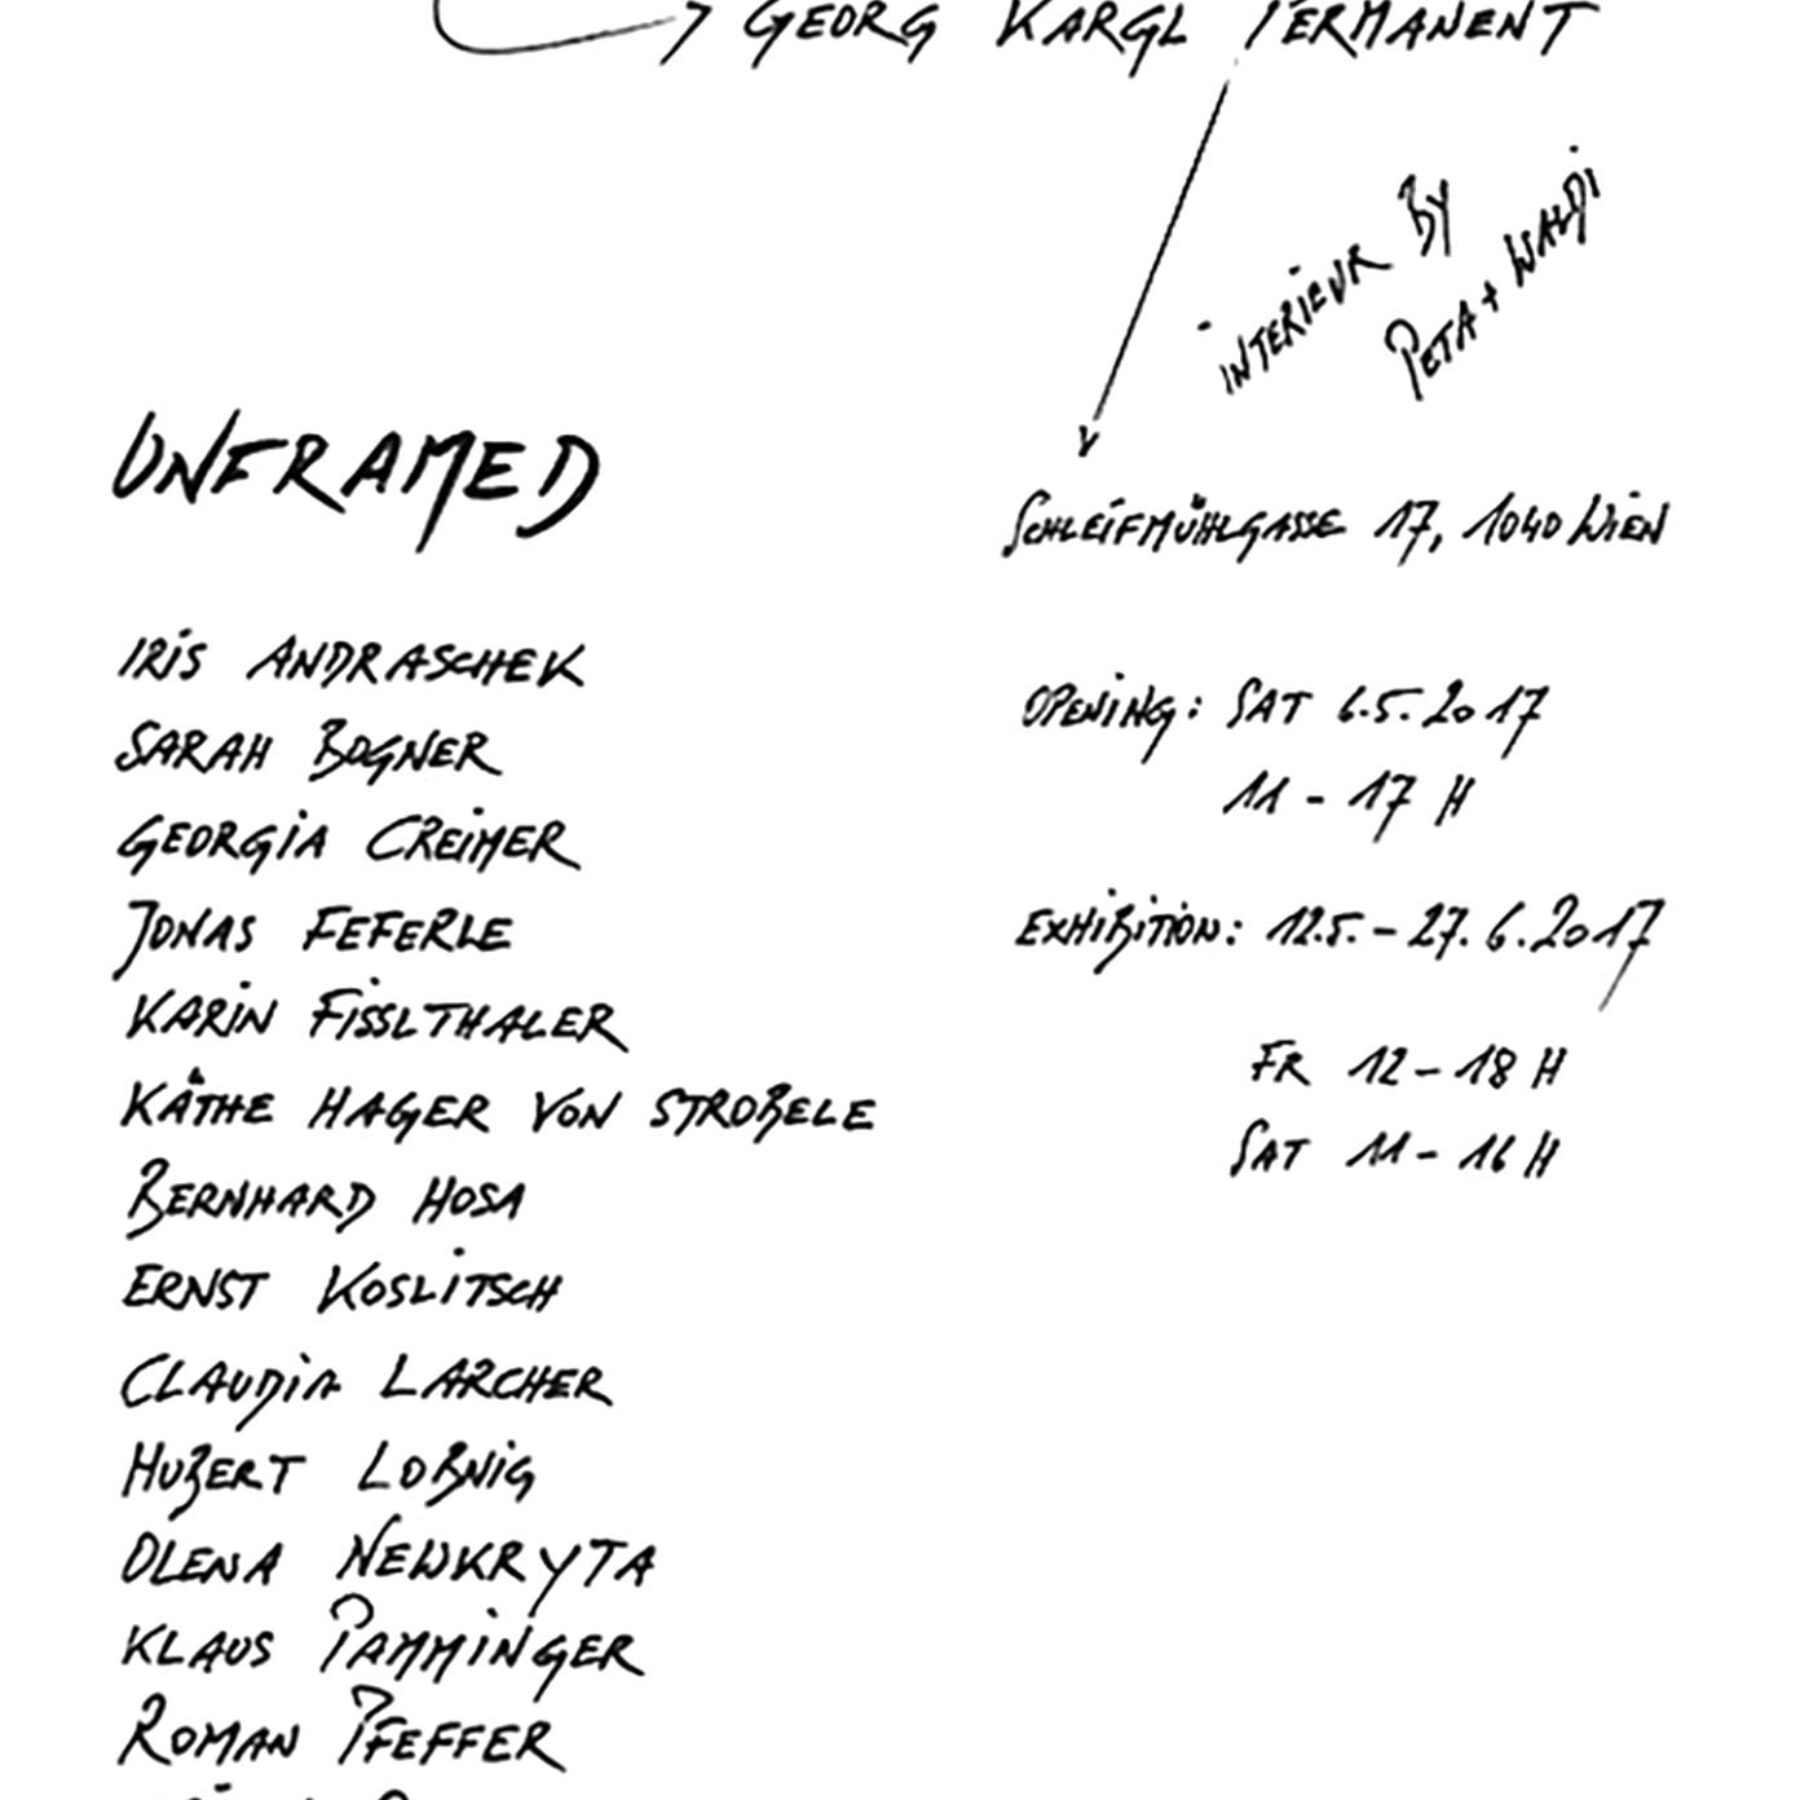 GEORG KARGL PERMANENT
INTERIEUR BY
PETA + WALDI
UNFRAMED
SCHLEIFMÜHLGASSE 17, 1040 WIEN
IRIS ANDRASCHEK
SARAH BOGNER
GEORGIA CREIMER
JONAS FEFERLE
KARIN FISSLTHALER
KÄTHE HAGER VON STROBELE
BERNHARD HOSA
ERNST KOSLITSCH
CLAUDIA LARCHER
HUBERT LOBNIG
OLENA NEWKRYTA
KLAUS PAMMINGER
ROMAN PFEFFER
OPENING: SAT 6.5.2017
11 - 17 H
EXHIBITION: 12.5. - 27.6.2017
FR 12 - 18 H
SAT 11 - 16 H